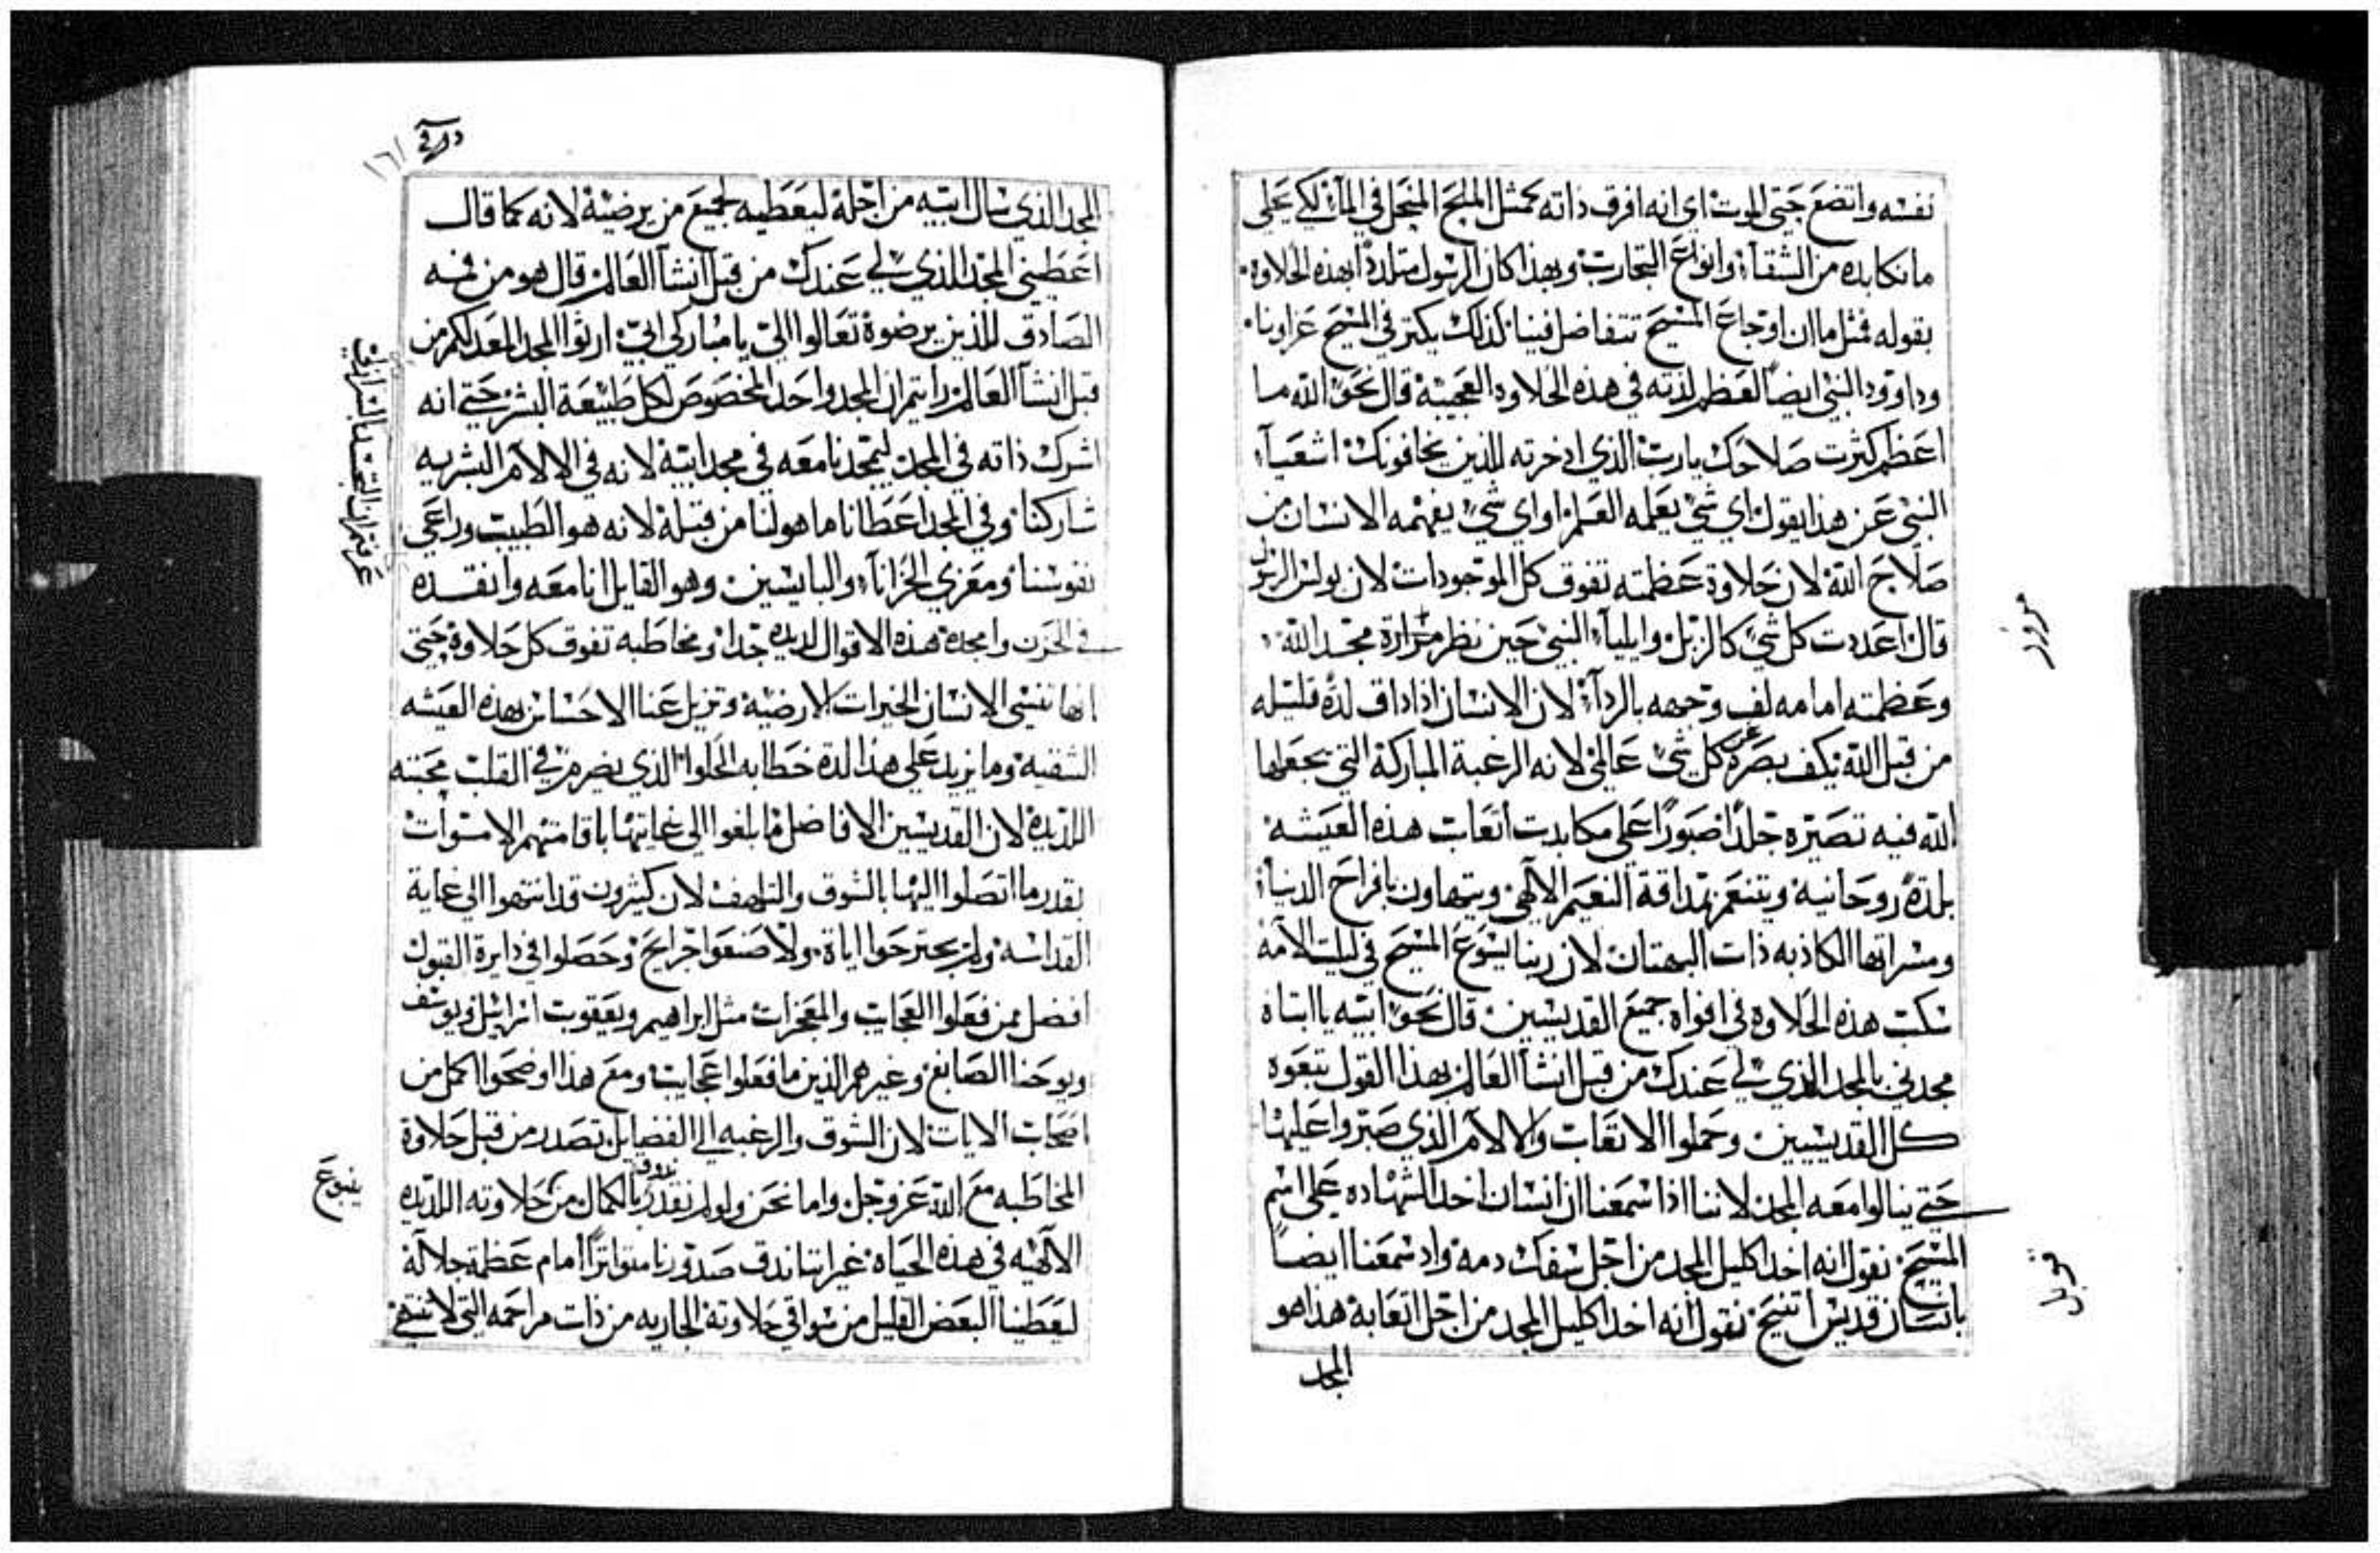 نفسه واتضع حتى الموت اي انه افرق ذاته كمثل الملح المنحل في الماء لكي يحلي
ما نكابده من الشقاء وانواع التجارب وبهذا كان الرسول متلددًا بهذه الحلاوه
بقوله فمثل ما ان اوجاع المسيح تتفاضل فينا كذلك يكتر في المسيح عزاونا
وداوود النبي ايضًا لعظم لذته في هذه الحلاوه العجيبة قال نحو الله ما
اعظم كثرت صلاحك يا رب الذي ادخرته للذين يخافونك اشعياء
النبي عن هذا يقول اي شي يعلمه العلم او اي شي يفهمه الانسان من
صلاح الله لان حلاوة عظمته تفوق كل الموجودات لان بولس الرسول
قال اعددت كل شي كالزبل وايلياء النبي حين نظر مرارة مجد الله
وعظمته امامه لف وجهه بالرداء لان الانسان اذا داق لدة قليله
من قبل الله يكف بصره عن كل شي عالمي لانه الرغبة المباركة التي يجعلها
الله فيه تصيره جلدًا صبورًا على مكابدت اتعاب هذه العيشه
بلدة روحانية ويتنعم بمداقة النعيم الالهي ويتهاون بافراح الدنيا
ومسراتها الكاذبه ذات البهتان لان ربنا يسوع المسيح في ليلت الامه
سكب هذه الحلاوه في افواه جميع القديسين قال نحو ابيه يا ابتاه
مجدني بالمجد الذي لي عندك من قبل انشا العالم بهذا القول تبعوه
كل القديسيين وحملوا الاتعاب والالام الذي صبروا عليها
حتى ينالوا معه المجد لاننا اذا سمعنا ان انسان اخد الشهاده على اسم
المسيح نقول انه اخد اكليل المجد من اجل سفك دمه واد سمعنا ايضًا
بانسان قديس اتنيح نقول انه اخد اكليل المجد من اجل اتعابة هذا هو
المجد
المجد الذي سال ابيه من اجلة ليعطيه لجميع من يرضيه لانه كما قال
اعطيني المجد الذي لي عندك من قبل انشا العالم قال هو من فمه
الصادق للذين يرضوة تعالوا الي يا مباركي ابي ارثوا المجد المعد لكم من
قبل انشا العالم رايتم ان المجد واحد المخصوص لكل طبيعة البشر حتى انه
اشرك ذاته في المجد ليمجدنا معه في مجد ابية لانه في الالام البشريه
شاركنا وفي المجد اعطانا ما هو لنا من قبلة لانه هو الطبيب وراعي
نفوسنا ومعزي الحزانا والبايسين وهو القايل انا معه وانقده
في الحزن وامجدة هذه الاقوال لديده جدا ومخاطبه تفوق كل حلاوة حتى
انها تنسي الانسان الخيرات الارضية وتزيل عنا الاحساس بهذه العيشه
الشقية وما يزيد على هذا لدة خطابه الحلوا الذي يضرم في القلب محبته
اللديدة لان القديسين الافاضل ما بلغوا الى غايتها باقامتهم الاموات
بقدر ما اتصلوا اليها بالشوق والتلهف لان كثيرون قد انتهوا الى غاية
القداسه ولم يجترحوا اياة ولا صنعوا جرايح وحصلوا في دايرة القبول
افضل ممن فعلوا العجايب والمعجزات مثل ابراهيم ويعقوب اسرائيل ويوسف
ويوحنا الصابغ وغيرهم الذين ما فعلوا عجايب ومع هذا اوضحوا اكمل من
اصحاب الايات لان الشوق والرغبه الى الفضايل تصدر من قبل حلاوة
المخاطبه مع الله عز وجل واما نحن ولو لم نقدر ندوق بالكمال من حلاوته اللديده
الالهيه في هذه الحياه غير اننا ندق صدورنا متواترًا امام عظمة جلالة
ليعطينا البعض القليل من سواقي حلاوتة الجاريه من ذات مراحمه التي لا تنتهي
ينبوع